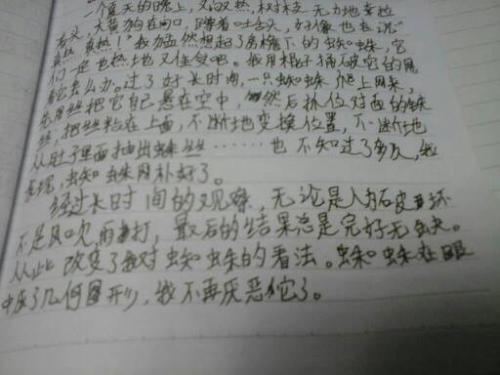 一个夏天的晚上，又闷又热，树枝无力地耷拉
着头，大黄狗在门口，蹲着吐舌头，好像也在说"
真热 真热！"我猛然想起了房檐下的蜘蛛，它
们一定也热地又住食吧。我用棍子捅破它的网
看它怎么办。过了好长时间，一只蜘蛛爬上网来，
先用丝把它自己悬在空中，然后抓位对面的蛛
丝，把丝粘在上面，不断地变换位置，不断地
从肚子里面抽出蛛丝……也不知过了多久，我
发现，蜘蛛网补好了。
经过长时间的观察，无论是人为破坏
不是风吹雨打，最后的结果总是完好无缺。
从此改变了我对蜘蛛的看法。蜘蛛在眼
中成了几何图形，我不再厌恶它了。